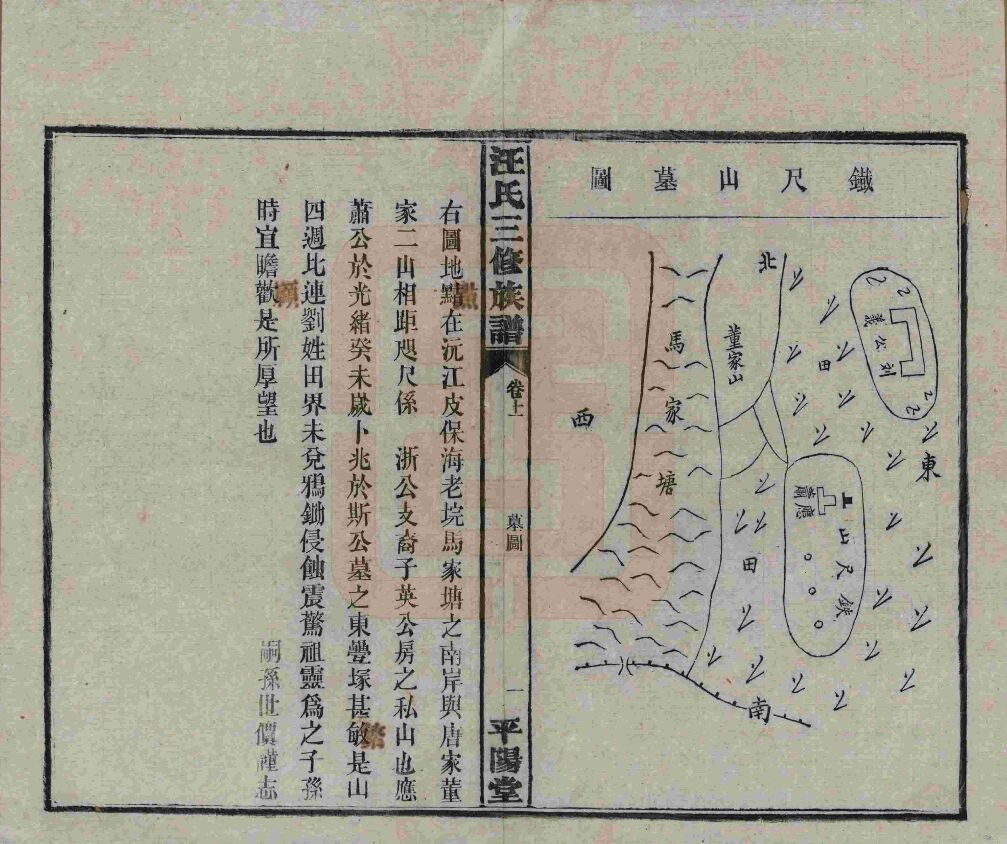 鐵尺山墓圖
北
董家山
馬家塘
西
田
義公刘
東
應蕭
鉄尺山
田
南
汪氏三修族譜
卷上
墓圖
一
平陽堂
右圖地點在沅江皮保海老垸馬家塘之南岸與唐家董
家二山相距咫尺係 浙公支裔子英公房之私山也應
蕭公於光緒癸未歲卜兆於斯公墓之東壘塚甚敏是山
四週比連劉姓田界未兌鴉鋤侵蝕震驚祖靈為之子孫
時宜瞻歡是所厚望也
嗣孫世價謹志